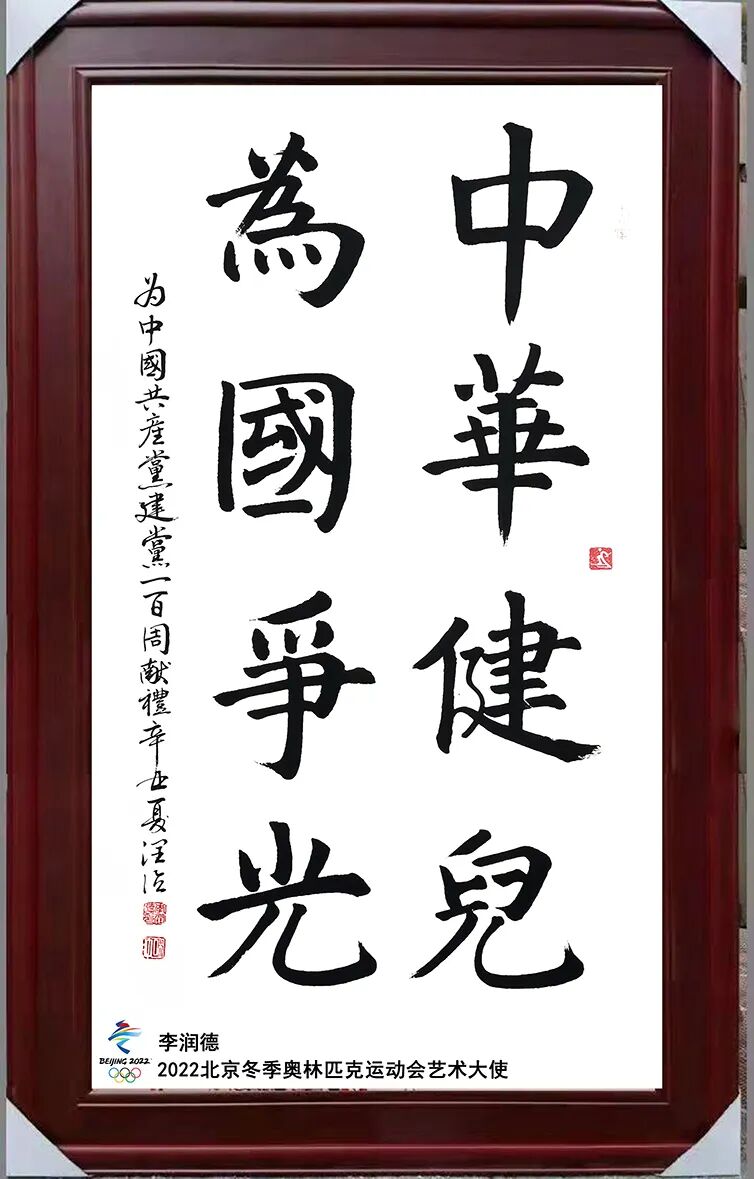 中華健兒
為國爭光
为中國共産黨建黨一百周献禮辛丑夏润德
BEIJING 2022
李润德
2022北京冬季奥林匹克运动会艺术大使